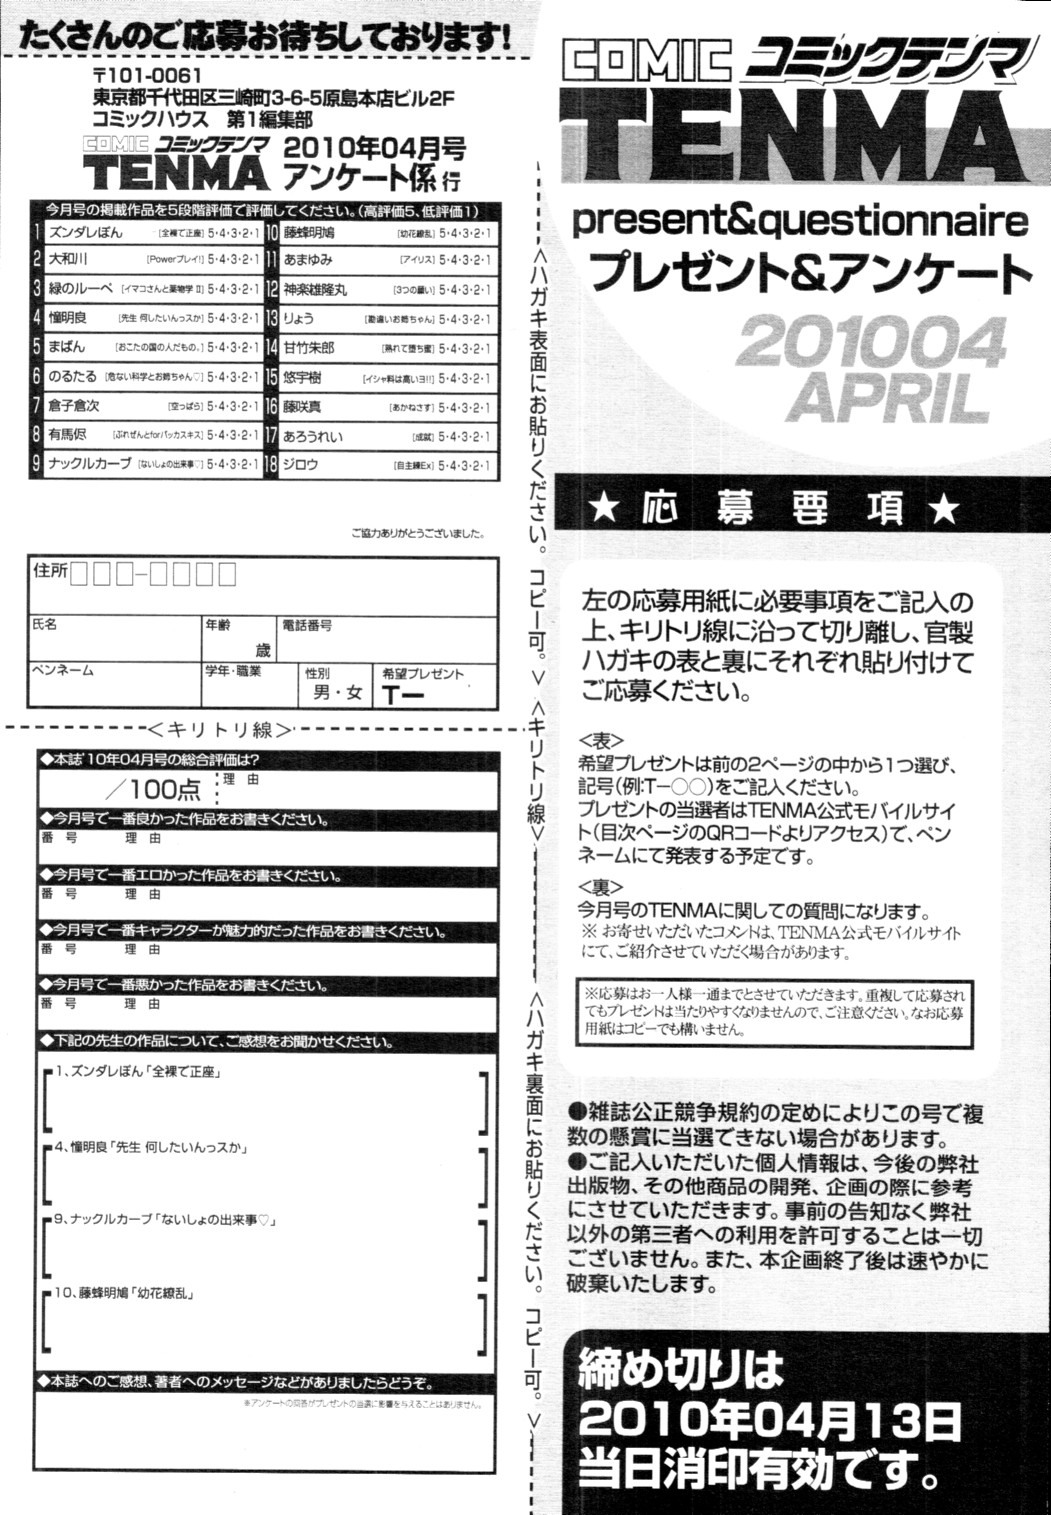 たくさんのご応募お待ちしております!
〒101-0061
東京都千代田区三崎町3-6-5原島本店ビル2F
コミックハウス 第1編集部
COMIC コミックテンマ
TENMA
2010年04月号
アンケート係 行
今月号の掲載作品を5段階評価で評価してください。(高評価5、低評価1)
1 ズンダレぽん [全裸で正座] 5・4・3・2・1
2 大和川 [Powerプレイ!] 5・4・3・2・1
3 緑のルーペ [イマコさんと薬物学 II] 5・4・3・2・1
4 憧明良 [先生 何したいんっスか] 5・4・3・2・1
5 まばん [おこたの国の人だもの。] 5・4・3・2・1
6 のるたる [危ない科学とお姉ちゃん♡] 5・4・3・2・1
7 倉子倉次 [空っぽら] 5・4・3・2・1
8 有馬侭 [ぷれぜんとforバッカスキス] 5・4・3・2・1
9 ナックルカーブ [ないしょの出来事♡] 5・4・3・2・1
10 藤蜂明鳩 [幼花繚乱] 5・4・3・2・1
11 あまゆみ [アイリス] 5・4・3・2・1
12 神楽雄隆丸 [3つの願い] 5・4・3・2・1
13 りょう [勘違いお姉ちゃん] 5・4・3・2・1
14 甘竹朱郎 [熟れて堕ち蜜] 5・4・3・2・1
15 悠宇樹 [イシャ料は高いヨ!!] 5・4・3・2・1
16 藤咲真 [あかねさす] 5・4・3・2・1
17 あろうれい [成就] 5・4・3・2・1
18 ジロウ [自主練Ex] 5・4・3・2・1
ご協力ありがとうございました。
住所□□□-□□□□
氏名
年齢
歳
電話番号
ペンネーム
学年・職業
性別
男・女
希望プレゼント
Tー
<キリトリ線>
◆本誌'10年04月号の総合評価は?
/100点
理 由
◆今月号で一番良かった作品をお書きください。
番 号 理 由
◆今月号で一番エロかった作品をお書きください。
番 号 理 由
◆今月号で一番キャラクターが魅力的だった作品をお書きください。
番 号 理 由
◆今月号で一番悪かった作品をお書きください。
番 号 理 由
◆下記の先生の作品について、ご感想をお聞かせください。
1、ズンダレぽん「全裸で正座」
4、憧明良「先生 何したいんっスか」
9、ナックルカーブ「ないしょの出来事♡」
10、藤蜂明鳩「幼花繚乱」
◆本誌へのご感想、著者へのメッセージなどがありましたらどうぞ。
※アンケートの回答がプレゼントの当選に影響を与えることはありません。
<ハガキ表面にお貼りください。コピー可。>
<キリトリ線>
<ハガキ裏面にお貼りください。コピー可。>
COMIC コミックテンマ
TENMA
present&questionnaire
プレゼント&アンケート
201004
APRIL
★応募要項★
左の応募用紙に必要事項をご記入の
上、キリトリ線に沿って切り離し、官製
ハガキの表と裏にそれぞれ貼り付けて
ご応募ください。
<表>
希望プレゼントは前の2ページの中から1つ選び、
記号(例:T−○○)をご記入ください。
プレゼントの当選者はTENMA公式モバイルサイ
ト(目次ページのQRコードよりアクセス)で、ペン
ネームにて発表する予定です。
<裏>
今月号のTENMAに関しての質問になります。
※ お寄せいただいたコメントは、TENMA公式モバイルサイト
にて、ご紹介させていただく場合があります。
※応募はお一人様一通までとさせていただきます。重複して応募され
てもプレゼントは当たりやすくなりませんので、ご注意ください。なお応募
用紙はコピーでも構いません。
●雑誌公正競争規約の定めによりこの号で複
数の懸賞に当選できない場合があります。
●ご記入いただいた個人情報は、今後の弊社
出版物、その他商品の開発、企画の際に参考
にさせていただきます。事前の告知なく弊社
以外の第三者への利用を許可することは一切
ございません。また、本企画終了後は速やかに
破棄いたします。
締め切りは
2010年04月13日
当日消印有効です。